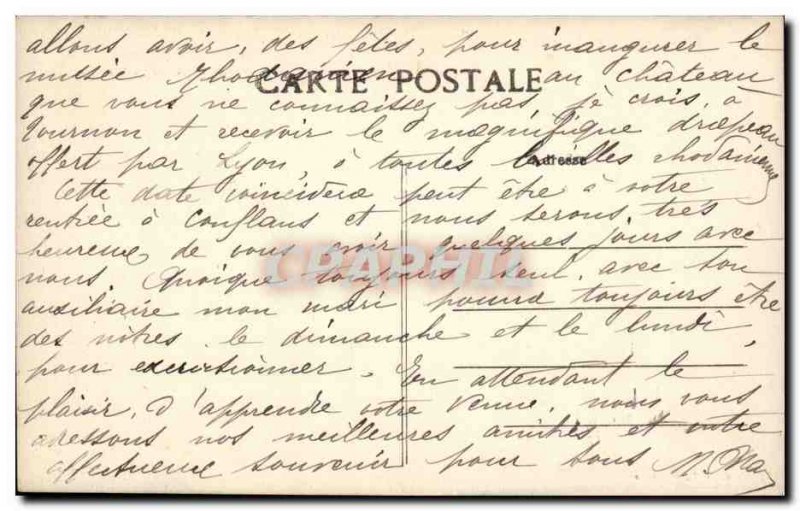 allons avoir, des fêtes, pour inaugurer le
musée Rhodanien au château
CARTE POSTALE
que vous ne connaissez pas, je crois, à
Tournon et recevoir le magnifique drapeau
offert par Lyon, à toutes les villes rhodaniennes
Adresse
Cette date coincidera peut être à votre
rentrée à Conflans et nous serons très
heureux de vous avoir quelques jours avec
nous. Quoique toujours seul, avec son
CPAPHIL
auxiliaire mon mari pourra toujours être
des nôtres le dimanche et le lundi,
pour excursionner. En attendant le
plaisir, d'apprendre votre venue, nous vous
adressons nos meilleures amitiés et votre
affectueux souvenir pour tous